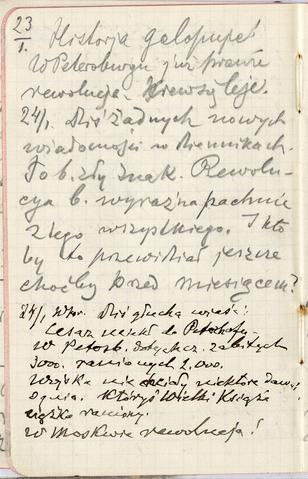 23/I. Historja galopuje!
W Petersburgu już prawie
rewolucja. Krew się leje.
24/I. Dziś żadnych nowych
wiadomości w dziennikach.
To b. zły znak. Rewolu-
cya b. wyraźna pachnie
z tego wszystkiego. I kto
by to przewidział jeszcze
choćby przed miesiącem?
24/I. Wtor. Dziś głucha wieść:
Cesarz uciekł do Peterhofu.
W Petersb. dotychcz. zabitych
3000. rannych 2,000.
Wojska nie chciały niektóre dawać
ognia. Któryś Wielki Książę
ciężko raniony.
W Moskwie rewolucja!